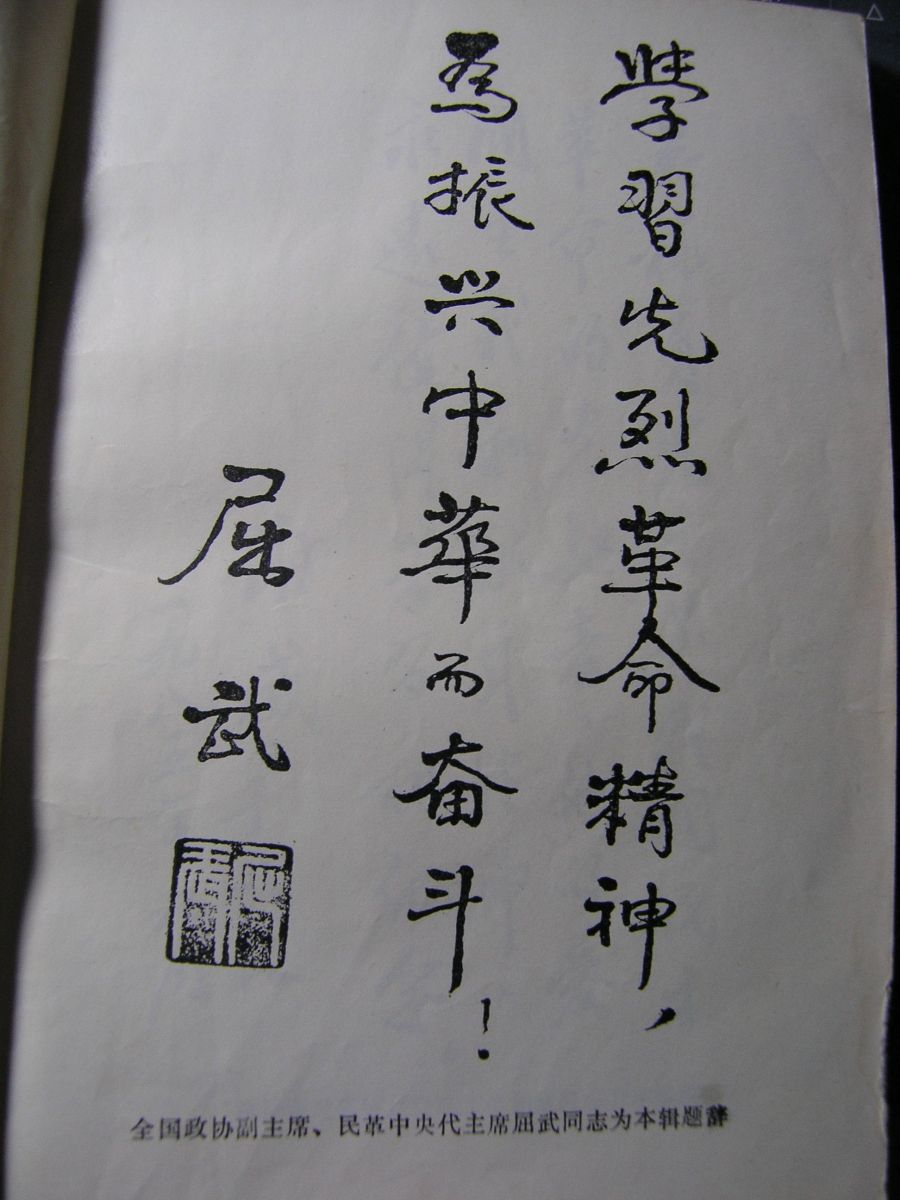 學習先烈革命精神，
為振兴中華而奋斗！
屈武
屈武
全国政协副主席、民革中央代主席屈武同志为本辑题辞